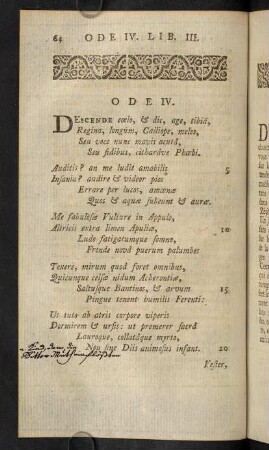 64 ODE IV. LIB. III.
ODE IV.
DEscende cœlo, & dic, age, tibiâ,
Regina, longum, Calliope, melos,
Seu voce nunc mavis acutâ,
Seu fidibus, citharâve Phœbi.
Auditis? an me ludit amabilis 5
Insania? audire & videor pios
Errare per lucos, amœnæ
Quos & aquæ subeunt & auræ.
Me fabulosæ Vulture in Appulo,
Altricis extra limen Apuliæ, 10
Ludo fatigatumque somno,
Fronde novâ puerum palumbes
Texere, mirum quod foret omnibus,
Quicunque celsæ nidum Acherontiæ,
Saltusque Bantinos, & arvum 15
Pingue tenent humilis Ferenti:
Ut tuto ab atris corpore viperis
Dormirem & ursis: ut premerer sacrâ
Lauroque, collatâque myrto,
Non sine Diis animosus infans. 20
Vester,